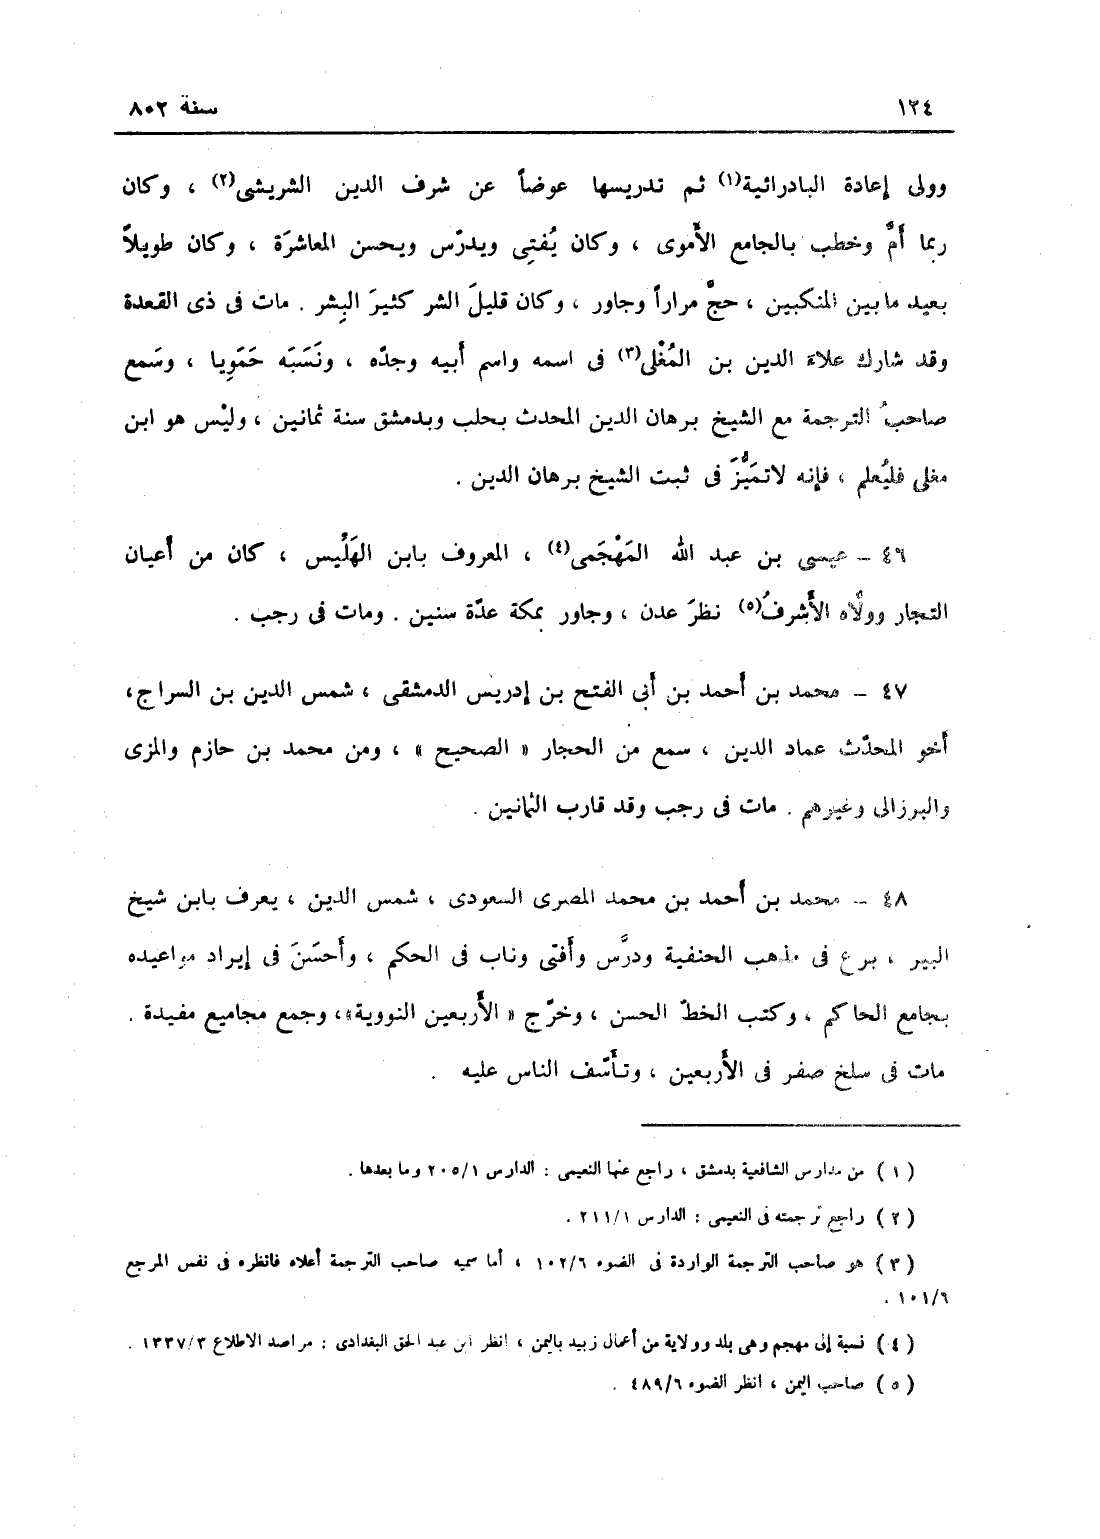 ١٢٤ سنة ٨٠٢
وولى إعادة البادرائية(١) ثم تدريسها عوضاً عن شرف الدين الشريشى(٢) ، وكان
ربما أَمَّ وخطب بالجامع الأَموى ، وكان يُفتِى ويدرّس ويحسن المعاشرَة ، وكان طويلاً
بعيد ما بين المنكبين ، حجَّ مراراً وجاور ، وكان قليلَ الشر كثيرَ البِشر . مات فى ذى القعدة
وقد شارك علاءَ الدين بن المُغْلى(٣) فى اسمه واسم أَبيه وجدّه ، ونَسَبَه حَمَوِيا ، وسَمع
صاحبُ الترجمة مع الشيخ برهان الدين المحدث بحلب وبدمشق سنة ثمانين ، وليْس هو ابن
مغلى فليُعلم ، فإنه لاتميُّزَ فى ثبت الشيخ برهان الدين .
٤٦ – عيسى بن عبد الله المَهْجَمى(٤) ، المعروف بابن الهَلِّيس ، كان من أَعيان
التجار وولَّاه الأَشرفُ(٥) نظرَ عدن ، وجاور بمكة عدّة سنين . ومات فى رجب .
٤٧ – محمد بن أَحمد بن أَبى الفتح بن إدريس الدمشقى ، شمس الدين بن السراج،
أَخو المحدّث عماد الدين ، سمع من الحجار « الصحيح » ، ومن محمد بن حازم والمزى
والبرزالى وغيرهم . مات فى رجب وقد قارب الثمانين .
٤٨ – محمد بن أَحمد بن محمد المصرى السعودى ، شمس الدين ، يعرف بابن شيخ
البير ، برع فى مذهب الحنفية ودرَّس وأَفتى وناب فى الحكم ، وأَحسَنَ فى إيراد مواعيده
بجامع الحاكم ، وكتب الخطّ الحسن ، وخرّج « الأَربعين النووية»، وجمع مجاميع مفيدة .
مات فى سلخ صفر فى الأَربعين ، وتأَسّف الناس عليه .
( ١ ) من مدارس الشافعية بدمشق ، راجع عنها النعيمى : الدارس ٢٠٥/١ وما بعدها .
( ٢ ) راجع ترجمته فى النعيمى : الدارس ٢١١/١ .
( ٣ ) هو صاحب الترجمة الواردة فى الضوء ١٠٢/٦ ، أما سميه صاحب الترجمة أعلاه فانظره فى نفس المرجع
١٠١/٦ .
( ٤ ) نسبة إلى مهجم وهى بلد وولاية من أعمال زبيد باليمن ، انظر ابن عبد الحق البغدادى : مراصد الاطلاع ١٣٣٧/٣ .
( ٥ ) صاحب اليمن ، انظر الضوء ٤٨٩/٦ .